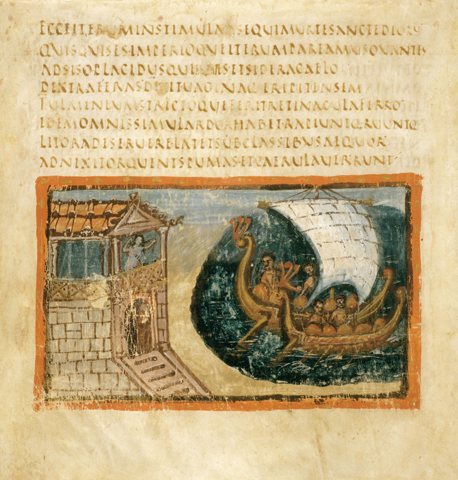 ECCEITERUMINSTIMULATSEQUIMURTESANCTEDEORV
QUISQUISESIMPERIOQUEITERUMPAREMUSOVANTES
ADSISOPLACIDUSQUEIUVESETSIDERACAELO
DEXTRAFERASDIXITVAGINAQ·ERIPITENSEM
FULMINEUMSTRICTOQUEFERITRETINACULAFERRO
IDEMOMNISSIMULARDORHABETRAPIUNTQ·RUUNTQ·
LITORADESERUERELATETSUBCLASSIBUSAEQUOR
ADNIXITORQUENTSPUMASETCAERULAVERRUNT